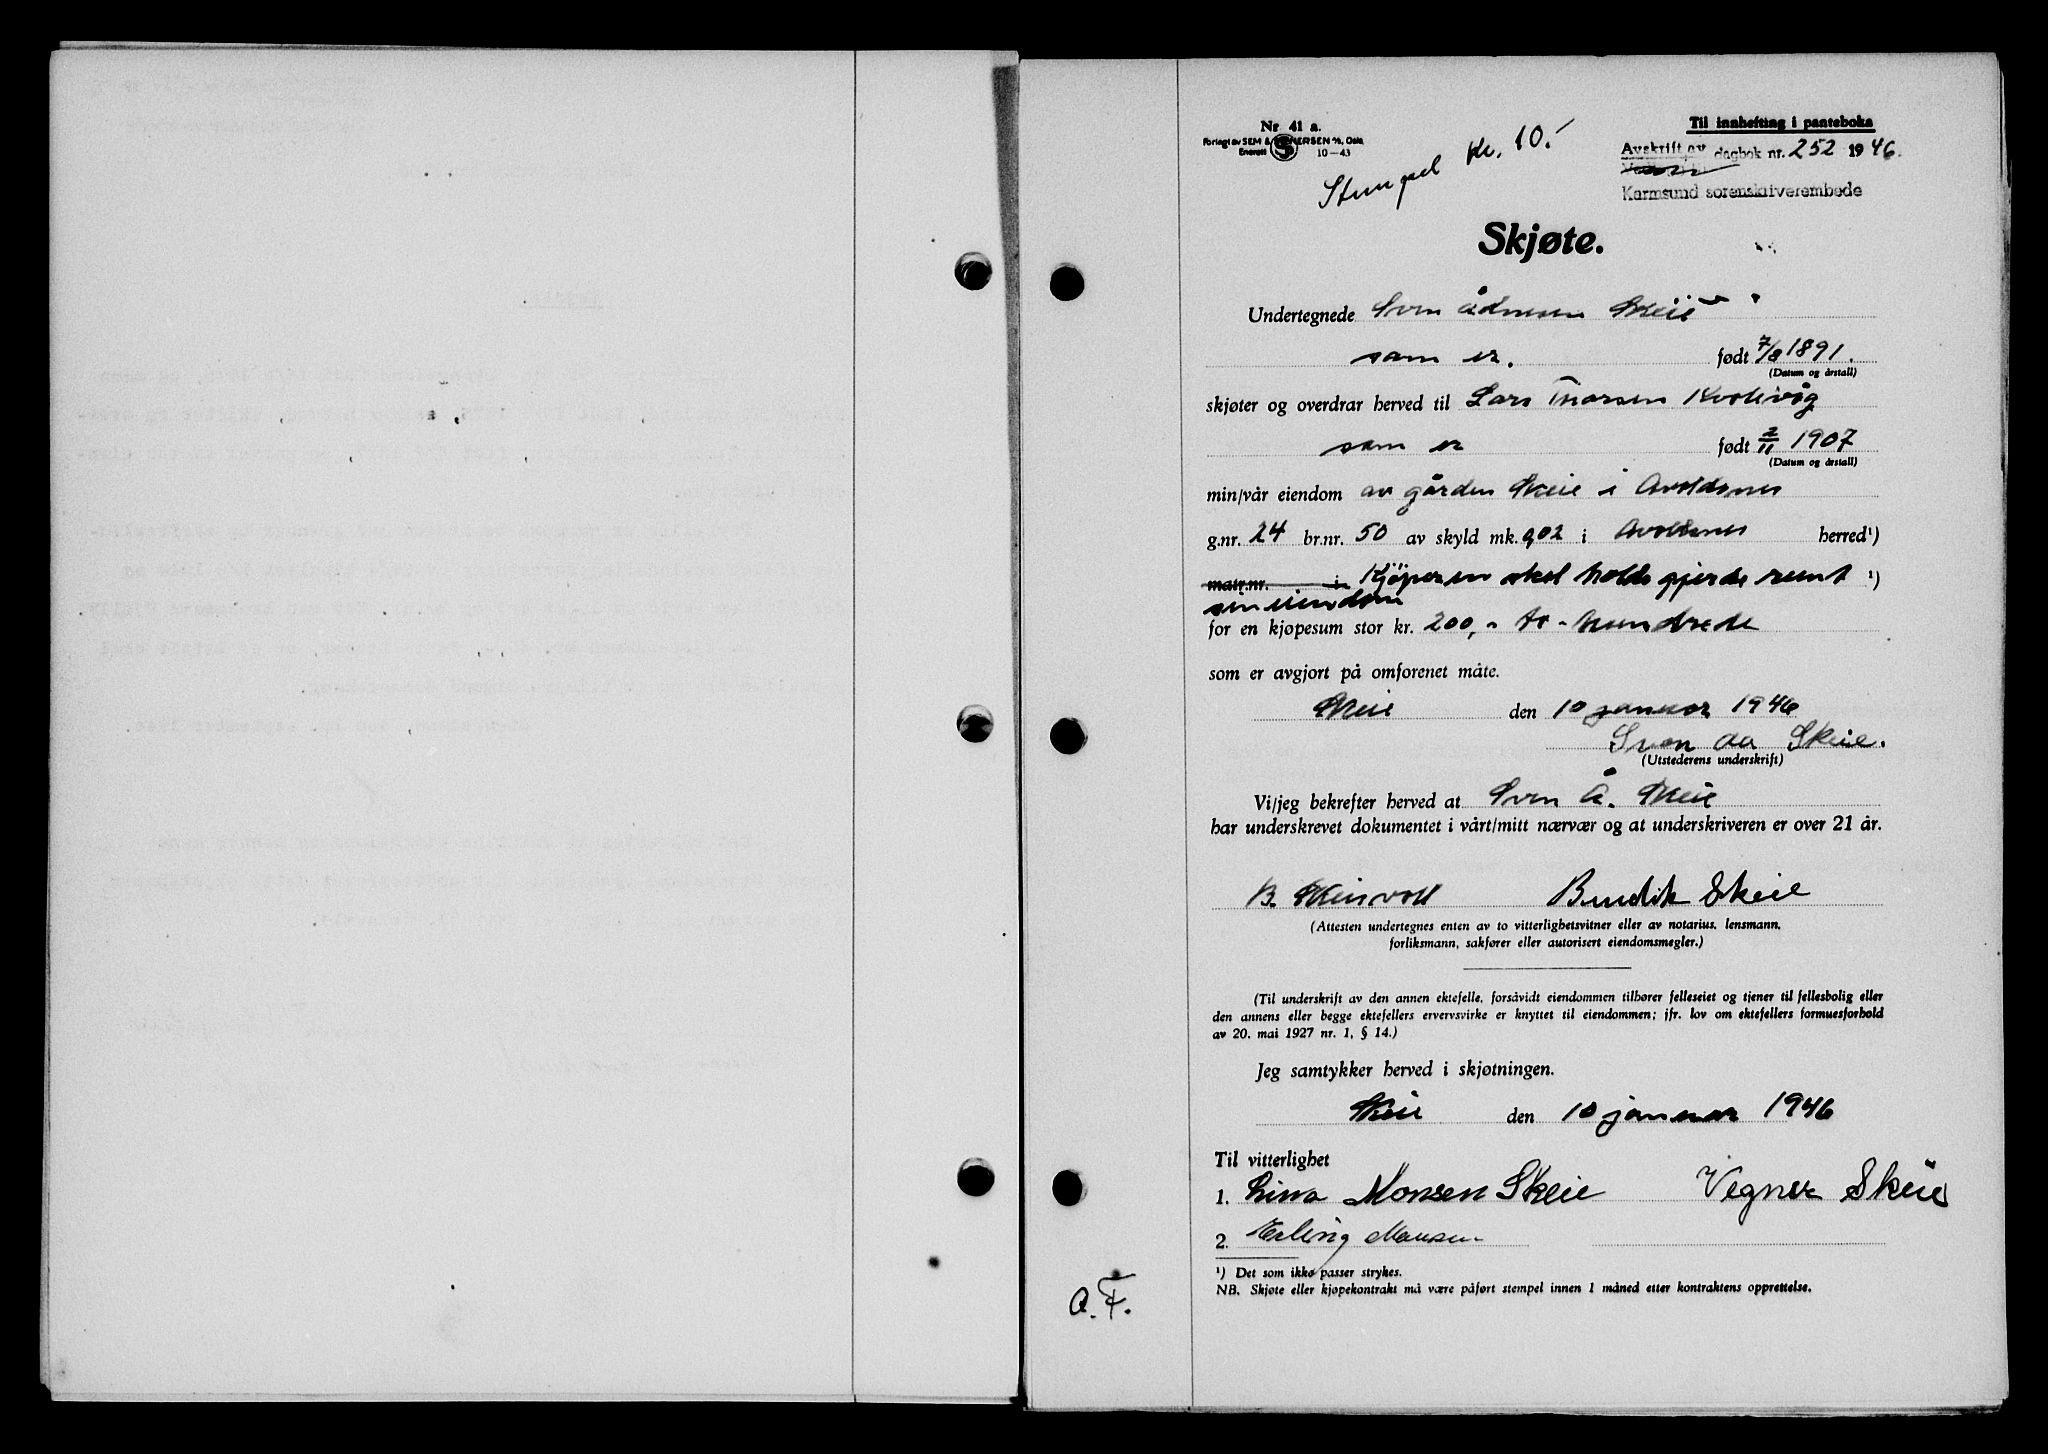 Nr 41 a.
Forlagt av SEM & STENERSEN A/S, Oslo
Enerett S 10-43
Stempel kr. 10.-
Til innhefting i panteboka
Avskrift av dagbok nr. 252 1946.
Karmsund sorenskriverembede
Skjøte.
Undertegnede Sven Ådnesen Skeie
som er. født 7/8 1891.
(Datum og årstall)
skjøter og overdrar herved til Lars Thorsen Kvalevåg
som er født 2/11 1907
(Datum og årstall)
min/vår eiendom av gården Skeie i Avaldsnes
g.nr. 24 br.nr. 50 av skyld mk. 0,02 i Avaldsnes herred¹)
matr.nr. i Kjøperen skal holde gjerde rundt ¹)
sin eiendom
for en kjøpesum stor kr. 200,- to-hundrede
som er avgjort på omforenet måte.
Skeie den 10 januar 1946
Sven Aa Skeie.
(Utstederens underskrift)
Vi/jeg bekrefter herved at Sven Å. Skeie
har underskrevet dokumentet i vårt/mitt nærvær og at underskriveren er over 21 år.
B. Skeisvoll Bendik Skeie
(Attesten undertegnes enten av to vitterlighetsvitner eller av notarius, lensmann,
forliksmann, sakfører eller autorisert eiendomsmegler.)
(Til underskrift av den annen ektefelle, forsåvidt eiendommen tilhører felleseiet og tjener til fellesbolig eller
den annens eller begge ektefellers ervervsvirke er knyttet til eiendommen; jfr. lov om ektefellers formuesforhold
av 20. mai 1927 nr. 1, § 14.)
Jeg samtykker herved i skjøtningen.
Skeie den 10 januar 1946
Til vitterlighet
1. Lina Monsen Skeie Vegner Skeie
2. Erling Monsen
¹) Det som ikke passer strykes.
NB. Skjøte eller kjøpekontrakt må være påført stempel innen 1 måned etter kontraktens opprettelse.
a. F.